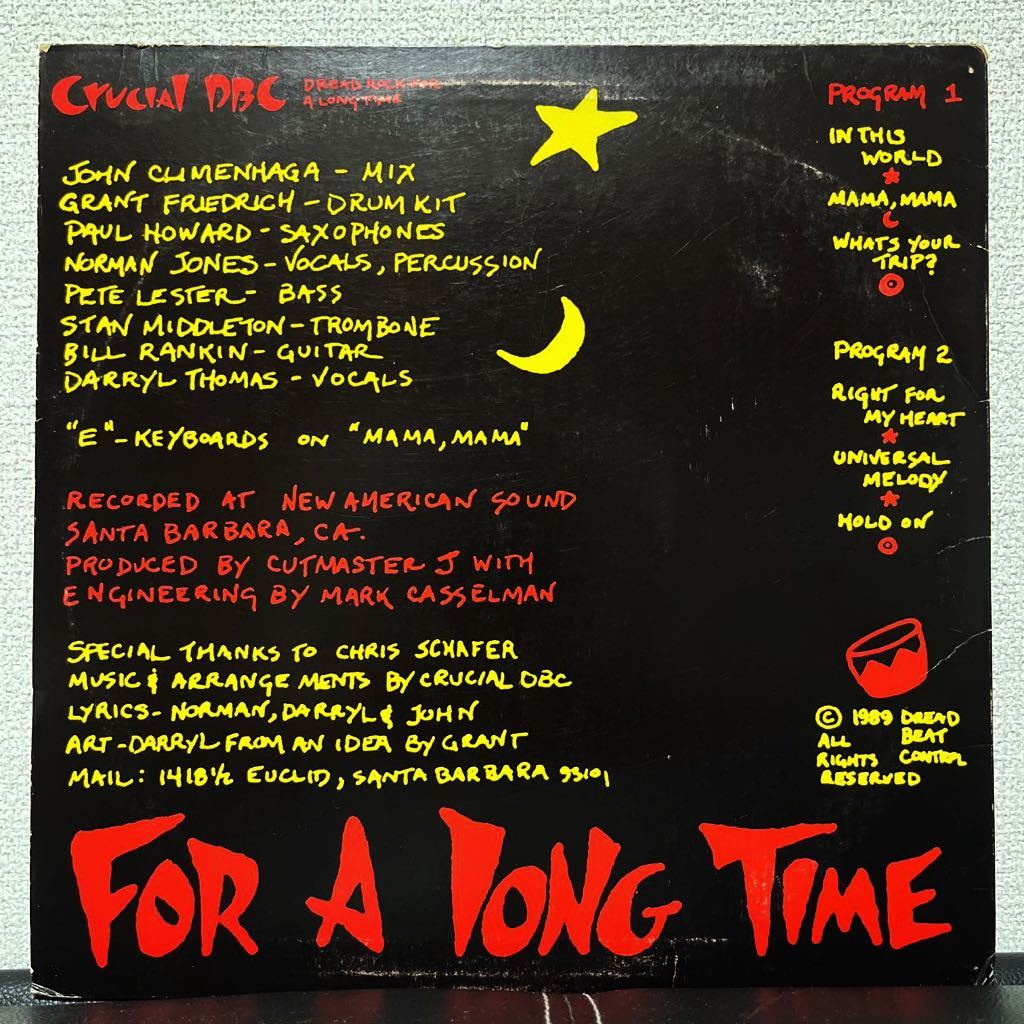 CRUCIAL DBC
DREAD ROCK FOR
A LONG TIME
JOHN CLIMENHAGA - MIX
GRANT FRIEDRICH - DRUM KIT
PAUL HOWARD - SAXOPHONES
NORMAN JONES - VOCALS, PERCUSSION
PETE LESTER - BASS
STAN MIDDLETON - TROMBONE
BILL RANKIN - GUITAR
DARRYL THOMAS - VOCALS
"E" - KEYBOARDS ON "MAMA, MAMA"
RECORDED AT NEW AMERICAN SOUND
SANTA BARBARA, CA.
PRODUCED BY CUTMASTER J WITH
ENGINEERING BY MARK CASSELMAN
SPECIAL THANKS TO CHRIS SCHAFER
MUSIC & ARRANGEMENTS BY CRUCIAL DBC
LYRICS - NORMAN, DARRYL & JOHN
ART - DARRYL FROM AN IDEA BY GRANT
MAIL: 1418 1/2 EUCLID, SANTA BARBARA 93101
PROGRAM 1
IN THIS
WORLD
MAMA, MAMA
WHATS YOUR
TRIP?
PROGRAM 2
RIGHT FOR
MY HEART
UNIVERSAL
MELODY
HOLD ON
© 1989 DREAD
ALL BEAT
RIGHTS CONTROL
RESERVED
FOR A LONG TIME